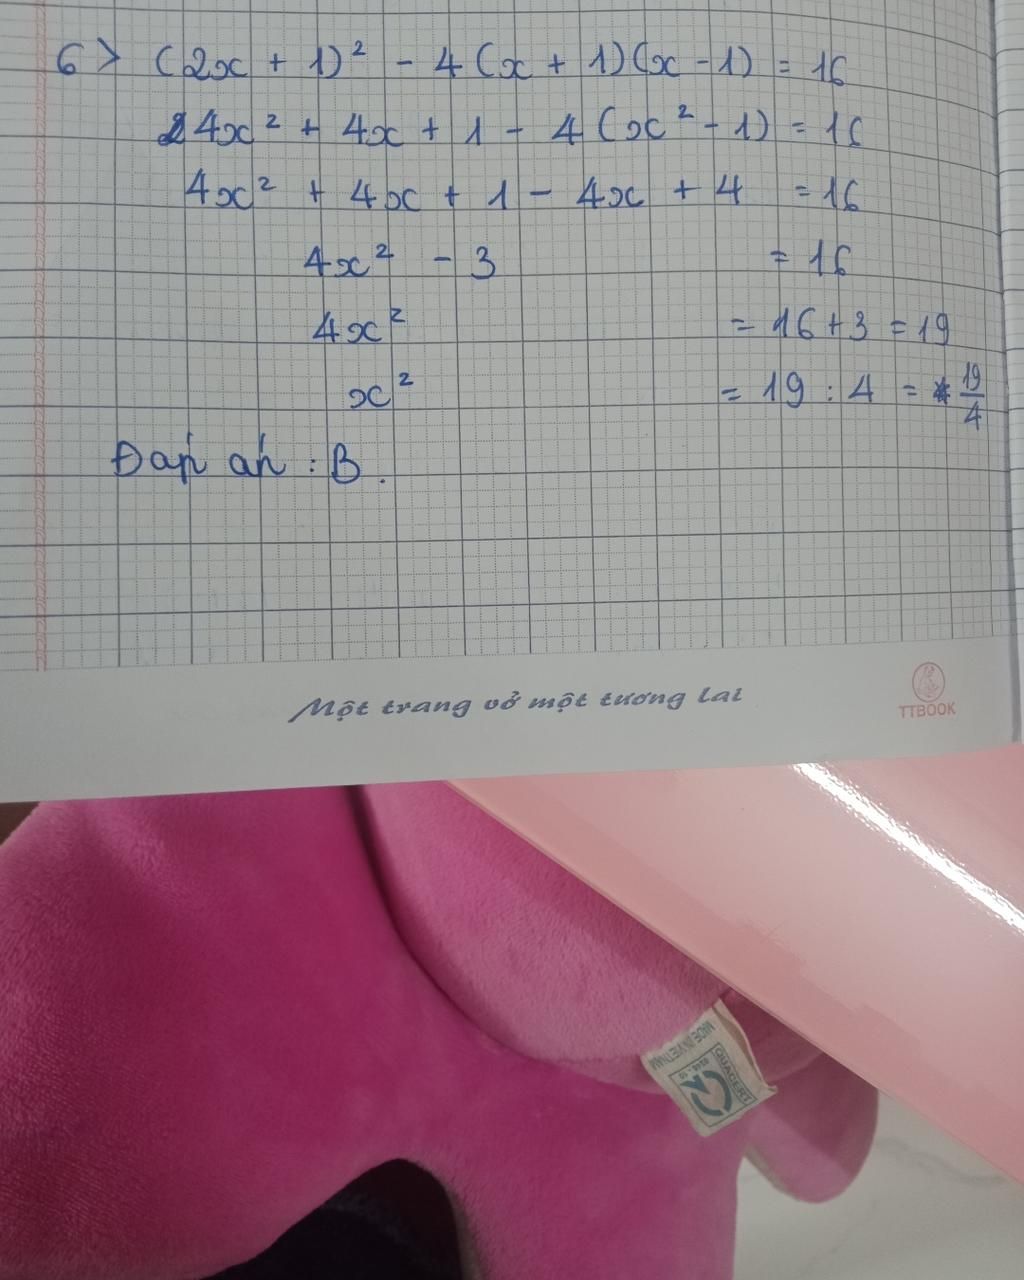 6> (2x + 1)² - 4(x + 1)(x - 1) = 16
4x² + 4x + 1 - 4(x² - 1) = 16
4x² + 4x + 1 - 4x + 4 = 16
4x² - 3 = 16
4x² = 16 + 3 = 19
x² = 19 : 4 = 19/4
Đáp án : B.
Một trang vở một tương lai
TTBOOK
MADE IN VIETNAM
QUACERT